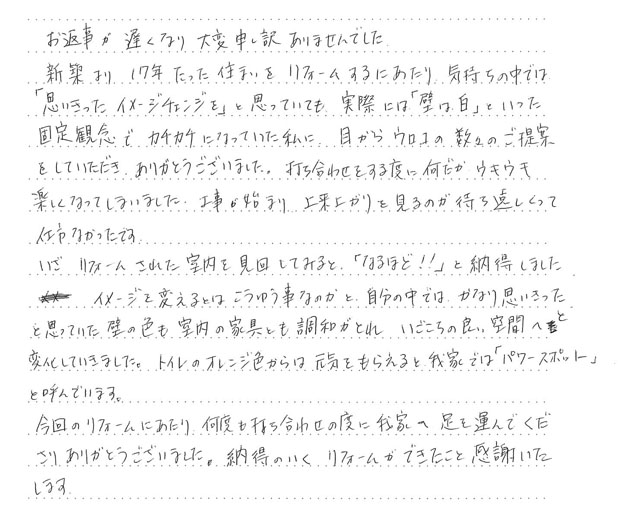 お返事が 遅くなり 大変申し訳 ありませんでした
新築より 17年 たった 住まいを リフォームするにあたり 気持ちの中では
「思いきった イメージチェンジを」と思っていても 実際には「壁は白」といった
固定観念で カチカチになっていた私に 目からウロコの数々のご提案
をしていただき ありがとうございました。打ち合わせをする度に何だか ウキウキ
楽しくなってしまいました 工事が始まり 出来上がりを見るのが待ち遠しくって
仕方なかったです
いざ リフォームされた室内を見回してみると、「なるほど!!」と納得しました
イメージを変えるとは こうゆう事なのかと 自分の中では かなり思いきった
と思っていた壁の色も室内の家具とも調和がとれ いごこちの良い空間へと
変化していきました。トイレのオレンジ色からは元気をもらえると我家では「パワースポット」
と呼んでいます。
今回のリフォームにあたり 何度も打ち合わせの度に我家へ 足を運んでくだ
さりありがとうございました。納得のいく リフォームができたこと感謝いた
します